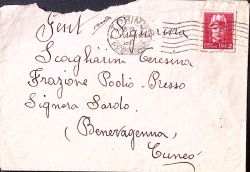 Gent Signorina
Scagliarini Teresina
Frazione Podio Presso
Signora Sardo
(Benevagenna)
Cuneo